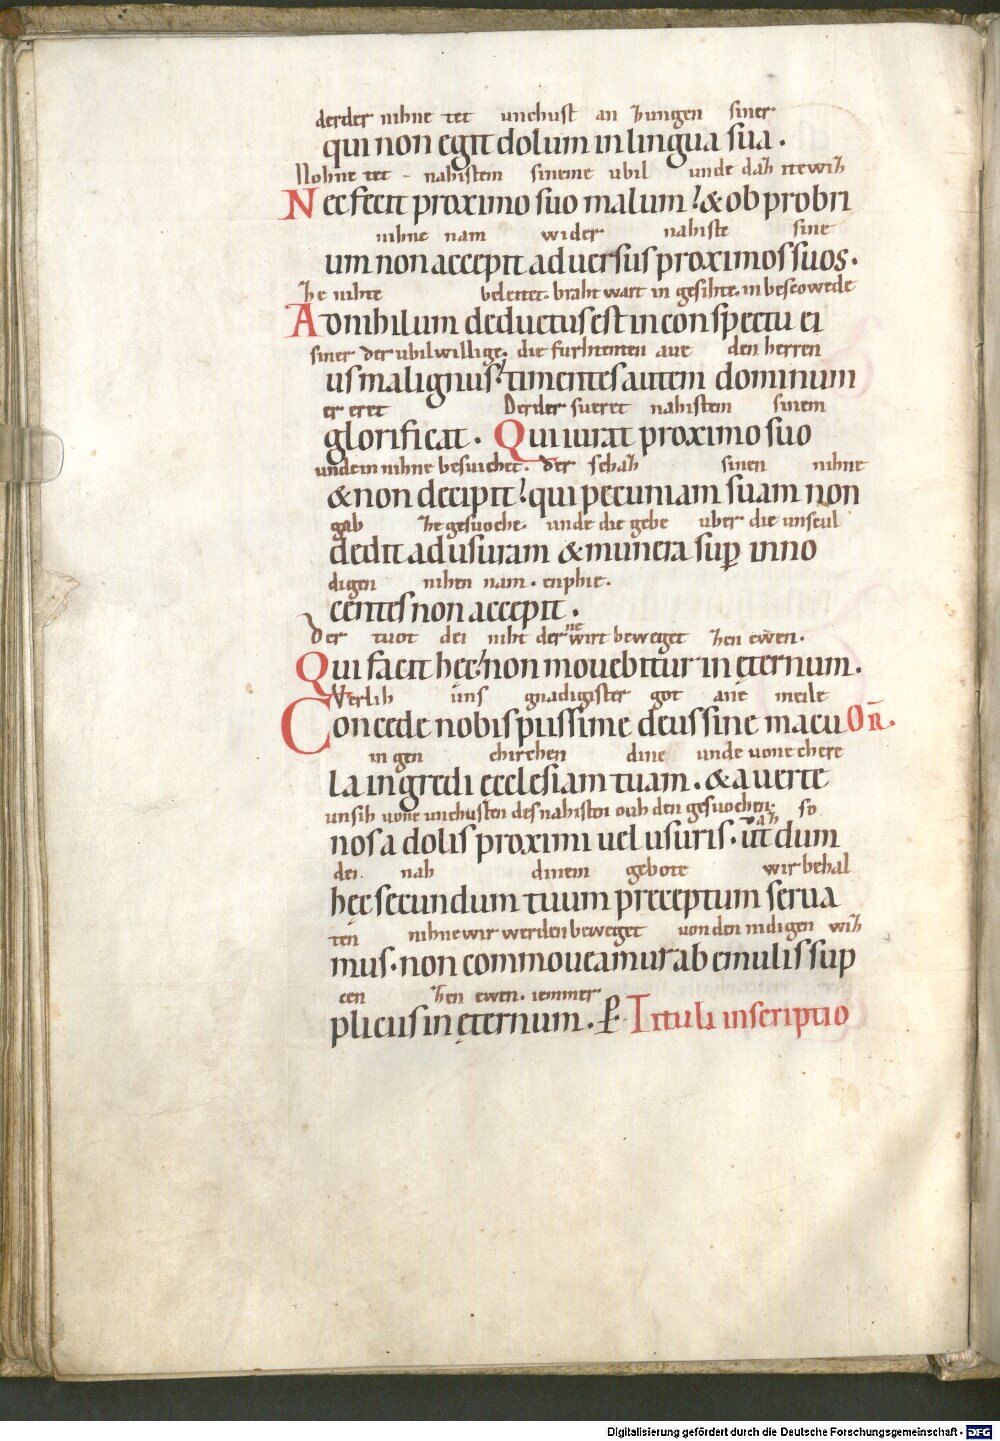 derder nihne tet unchust an zungen siner
qui non egit dolum in lingua sua .
Nohne tet nahistem sineme ubil unde daz itewiz
Nec fecit proximo suo malum & obprobri
nihne nam wider nahiste sine
um non accepit adversus proximos suos.
ze nihte beleitet. braht wart in gesihte. in bescowede
Ad nihilum deductus est in conspectu ei
siner der ubilwillige. die furhtenten aue den herren
us malignus: timentes autem dominum
er eret Derder sueret nahistem sinem
glorificat . Qui iurat proximo suo
undein nihne besuichet. der schaz sinen nihne
& non decipit qui pecuniam suam non
gab ze gesuoche. unde die gebe uber die unscul
dedit ad usuram & munera sup inno
digen nihen nam. enphie.
centes non accepit .
Der tuot dei niht der ne wirt beweget zen ewen.
Qui facit hec non movebitur in ęternum.
Verlih uns gnadigister got ane meile
Concede nobis piissime deus sine macu OR.
in gen chirchen dine unde uone chere
la ingredi ecclesiam tuam . & averte
unsih uone unchusten des nahisten ouh den gesuochen. daz so
nos a dolis proximi uel usuris . ut dum
dei. nah dinem gebote wir behal
hęc secundum tuum preceptum serua
ten nihne wir werden beweget uon den nidigen wiz
mus. non commoueamur ab emulis sup
cen zen ewen. iemmer
plicus in ęternum. P Tituli inscriptio
Digitalisierung gefördert durch die Deutsche Forschungsgemeinschaft - DFG